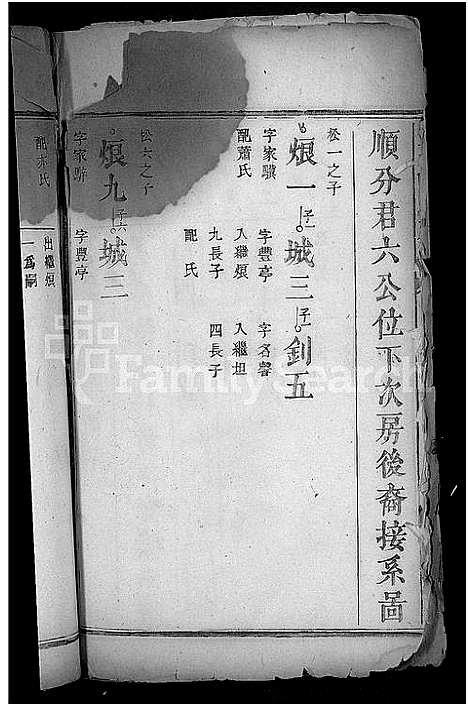 順分君六公位下次房後裔接系啚
松一之子
煨一 子一 城三 子一 釗五
字家騏 字豐亭 字名馨
配蕭氏 入繼煨 入繼坦
九長子 四長子
配 氏
松六之子
煨九 子 城三
字家駒 字豐亭
配 氏 出繼煨
一爲嗣
FamilySearch